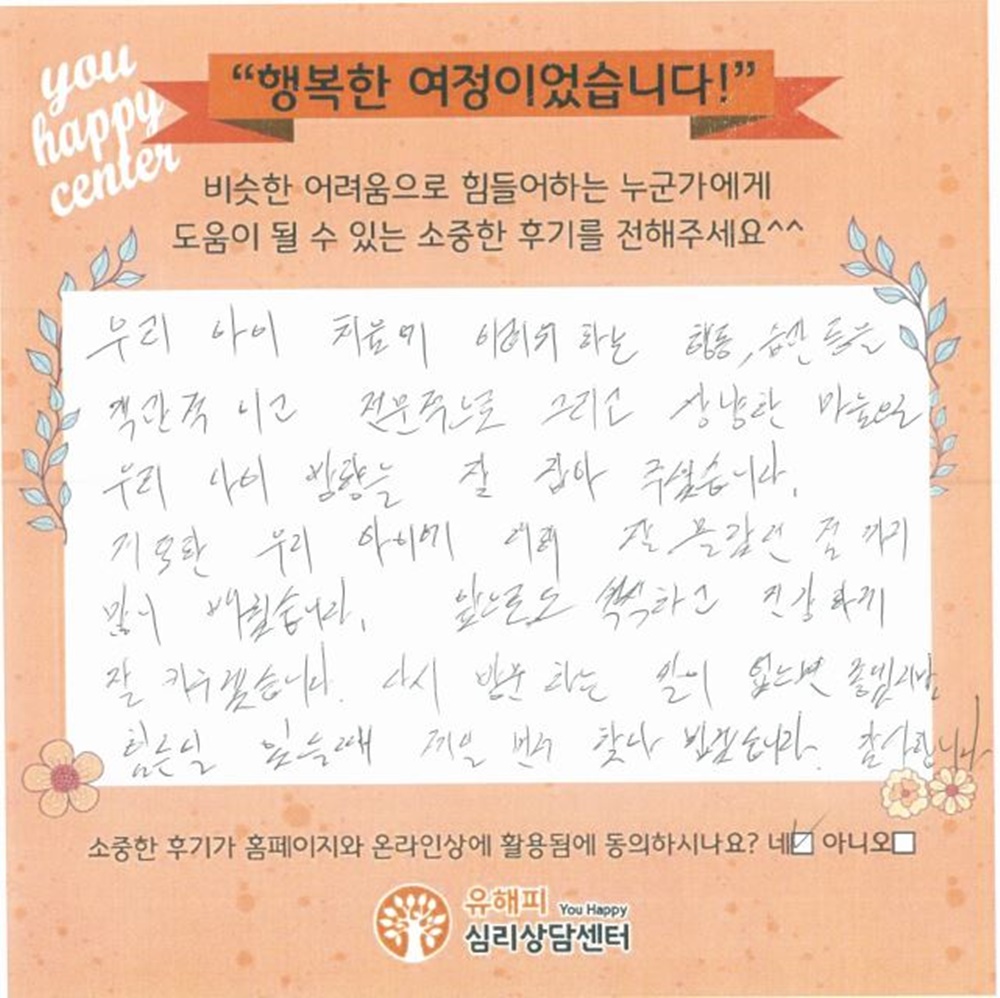 you
happy
center
“행복한 여정이었습니다!”
비슷한 어려움으로 힘들어하는 누군가에게
도움이 될 수 있는 소중한 후기를 전해주세요^^
우리 아이 처음에 하는 행동, 습관 등을
객관적 이고 전문적으로 그리고 상냥한 마음으로
우리 아이 방향을 잘 잡아 주셨습니다.
또한 우리 아이에 대해 잘 몰랐던 점 까지
많이 배웠습니다. 앞으로도 씩씩하고 건강하게
잘 키우겠습니다. 다시 방문 하는 일이 없으면 좋겠지만,
힘든일 있을때 제일 먼저 찾아 뵙겠습니다. 감사합니다
소중한 후기가 홈페이지와 온라인상에 활용됨에 동의하시나요? 네☑ 아니오☐
유해피 You Happy
심리상담센터